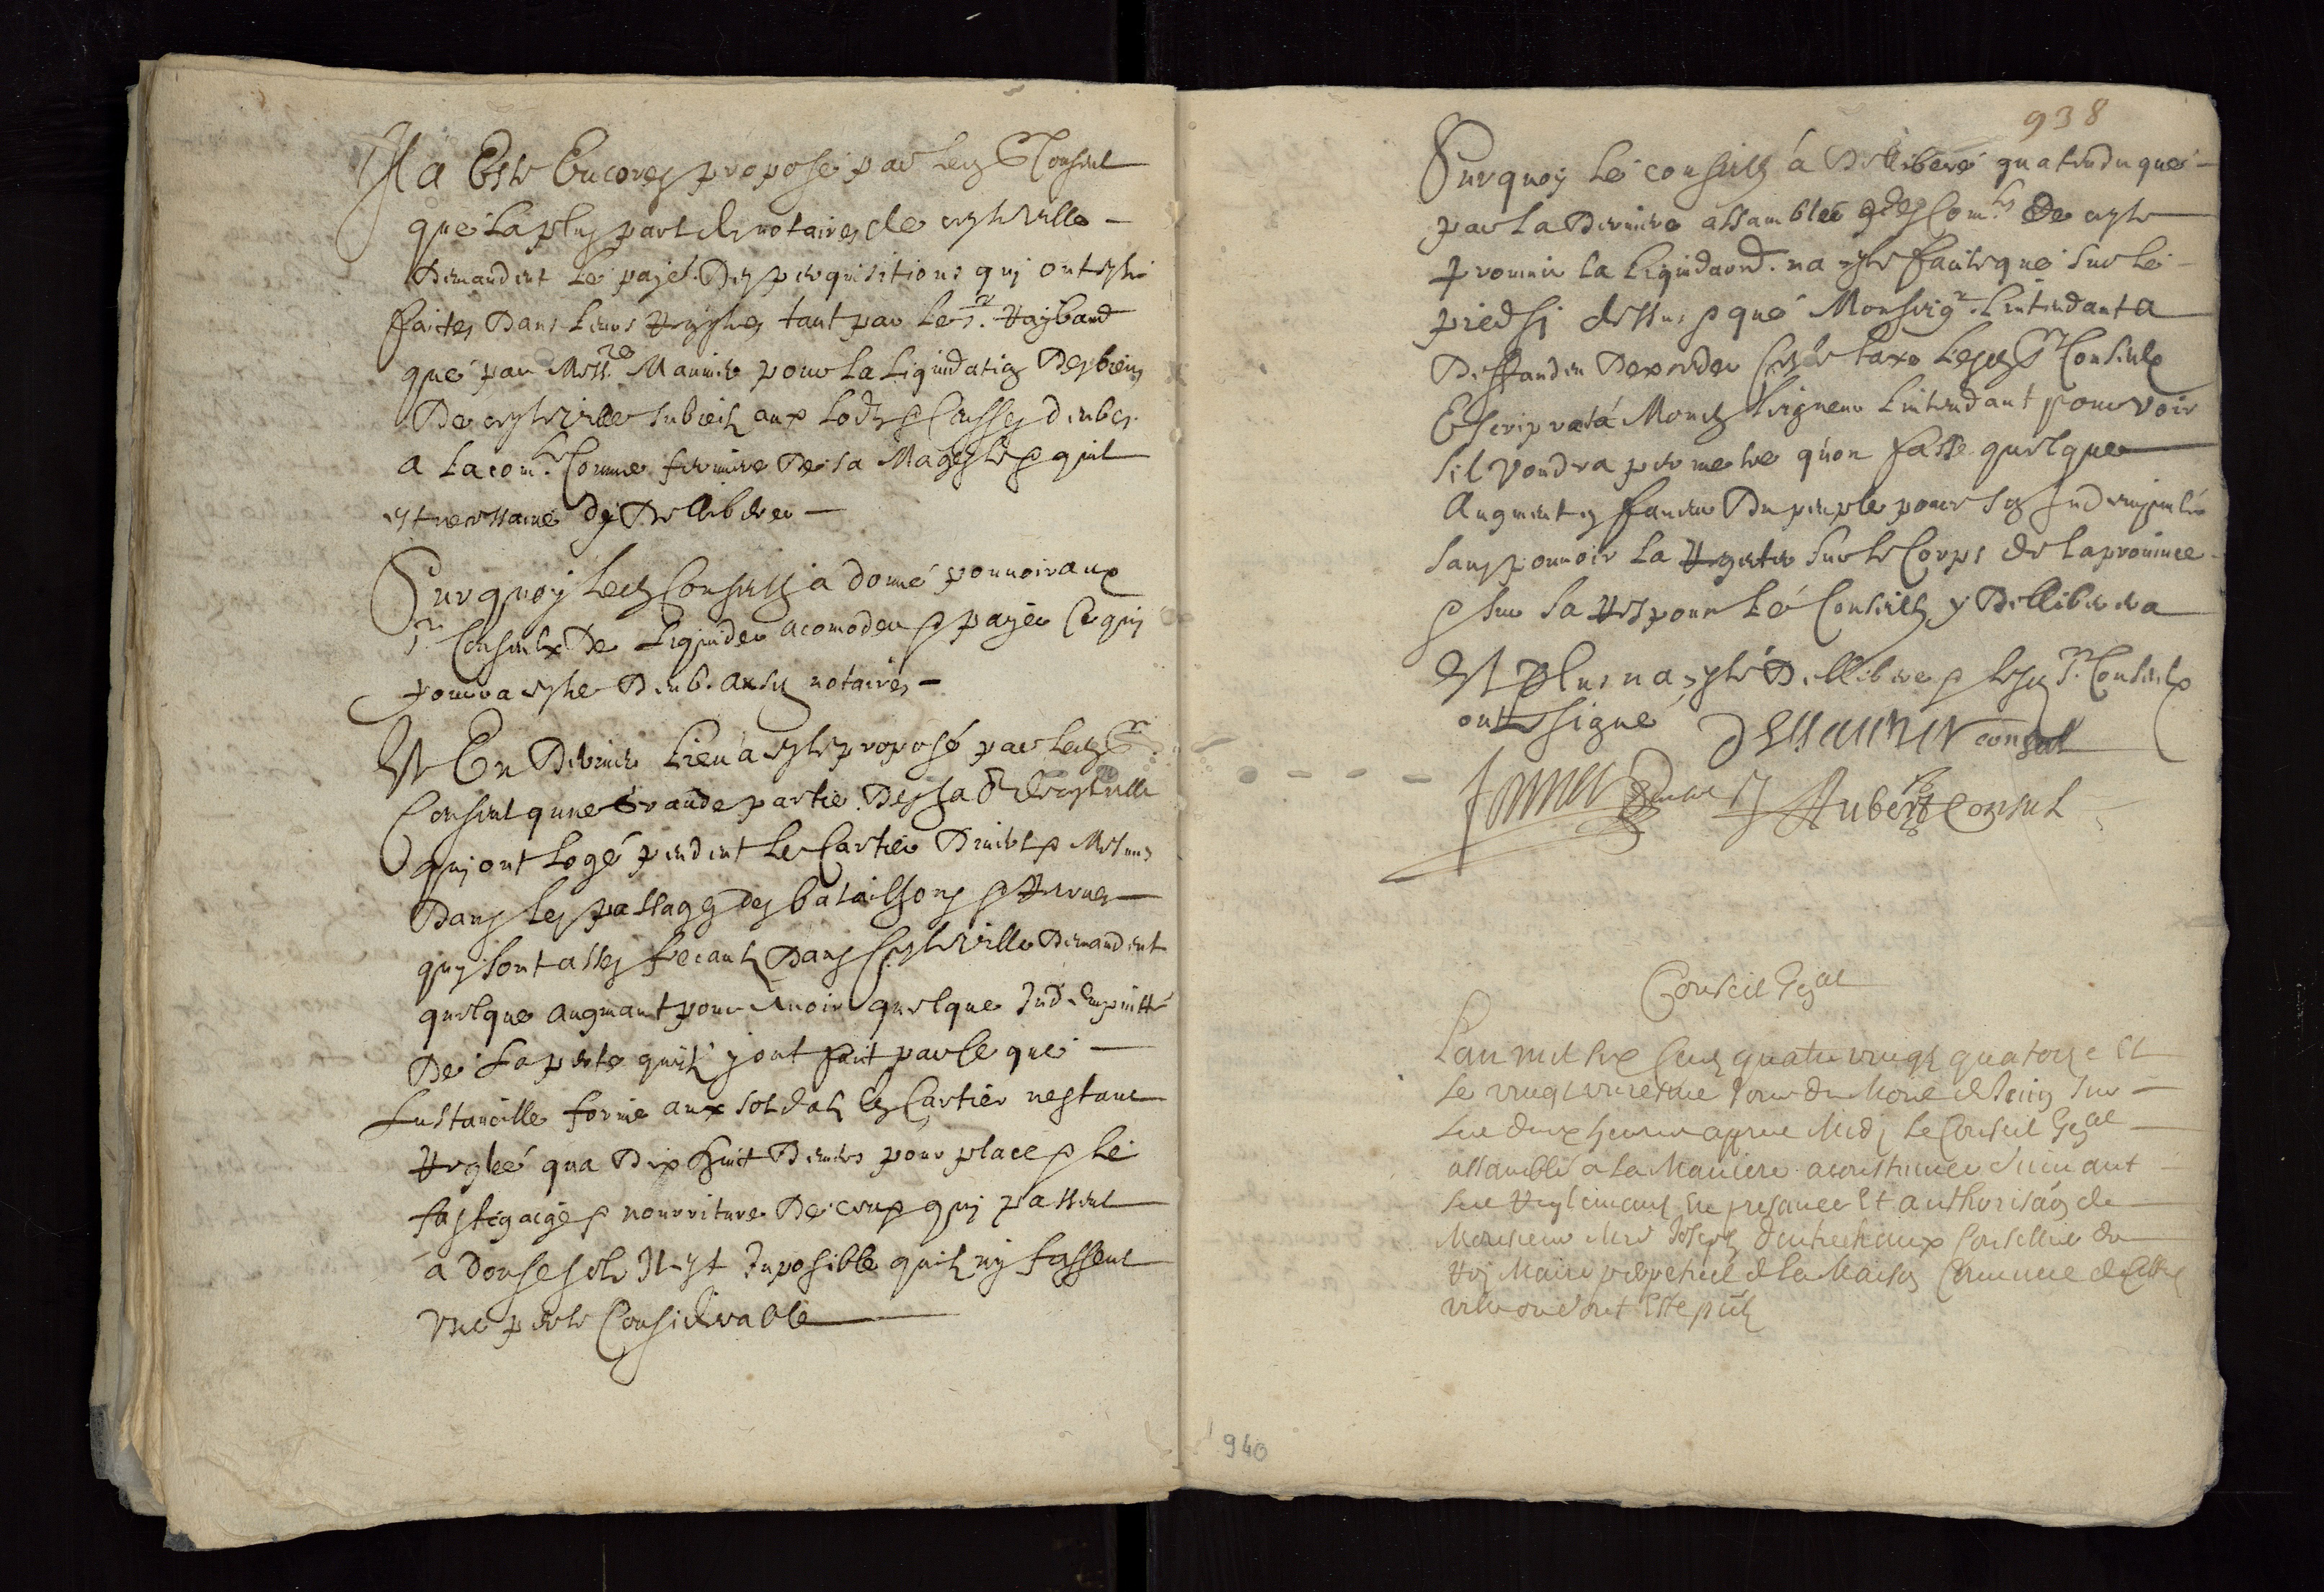 Il a Esté Encores proposé par lesd Srs Consul
que la plus part ds notaires de ceste ville
demandent le pajet. des perquisitions quj ont esté
faites dans leurs Registres tant par le Sr. Raybaud
que par Messre Maunier pour la liquidation des biens
de ceste ville subiects aux lods et Censses deubes
a la comté Comme fermiere de sa Mageste et quil
est necessaire dy dellibérer
Surquoy led Conseil a donné pouvoir aux
Srs Consuls de liquider acomoder et payer Ce quj
pourra estre deub. ausd notaires
Et En dernier lieu a esté proposé par lesd Srs
Consul qune Grande partie des ha de ceste ville
quj ont logé pendent le Cartier diver et Mesmes
dans les passages des bataillons et Recrues
quj sont asses frecants dans ceste ville demandent
quelque augmant pour avoir quelque Indempnitté
de la perte quils y ont fait par ce que
lustancille fornie aux soldats les Cartier nestant
Reglée qua dix huit deniers pour place et le
fastigaige et nourriture de ceux quj passent
a douse sols Il est Inposible quils nj fassent
une perte Considerable
938
Surquoy le conseil a dellibéré quatendu que
par la derniere assamblée des Comtés de ceste
province la liquidaond. na esté faite que sur le
pied sj dessus et que Monseigr. Lintendant a
deffandeu dexceder Ceste taxe lesd Srs Consuls
Escripront a Monsd seigneur Lintendant pour voir
sil voudra permetre quon fasse quelque
augment en faveur du peuple pour son Indempnité
sans pouvoir la Rejeter sur le Corps de la province
et sur sa Responce le Conseil y dellibérera
Et plus na esté dellibéré et lesd Srs Consuls
ont signé Dessaunier consul
Aubert Consul
Conseil Gnal
Lan mil six Cens quatre vingt quatorze et
le vingt uniesme Jour du Mois de Juin sur
les deux heures apres Midj le Conseil Gnal
assamblé a la Maniere acoustumée suivant
les Reglemens En presance Et authorisaon de
Monsieur Mre Joseph dentrechaux Conseiller du
Roj Maire perpetuel de la Maison Commune de Ceste
ville ou sont Esté pnts
940